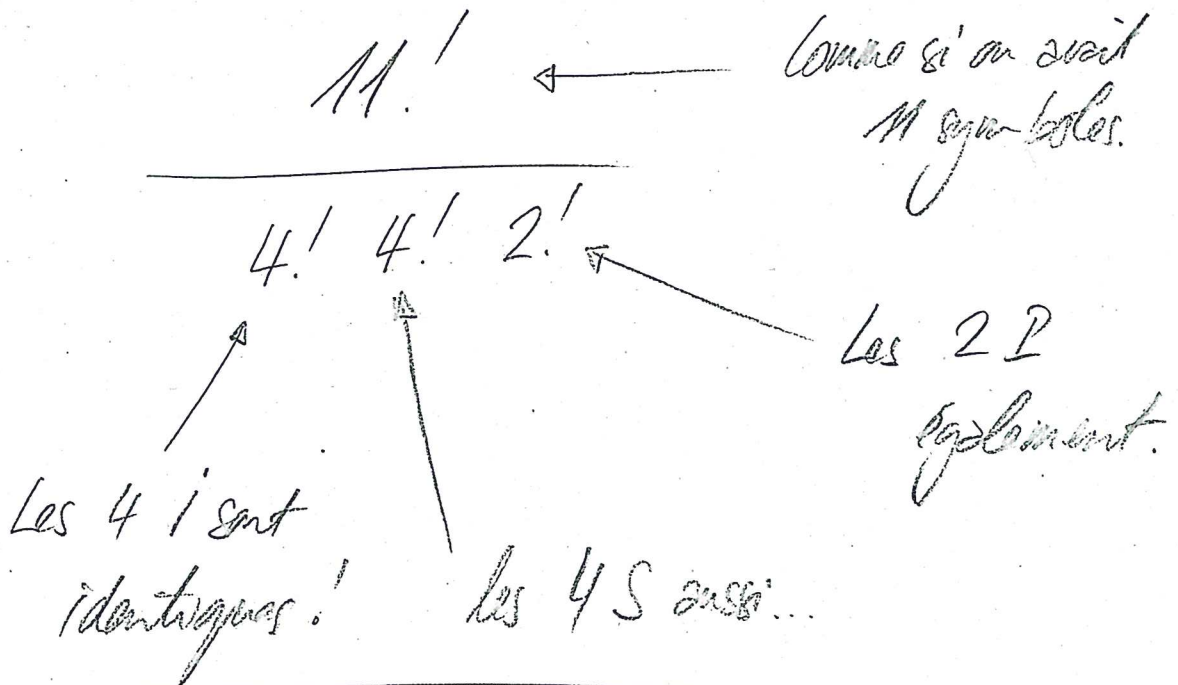 11!
Comme si on avait
11 symboles.
4! 4! 2!
Les 2 P
également.
Les 4 i sont
identiques!
les 4 S aussi...